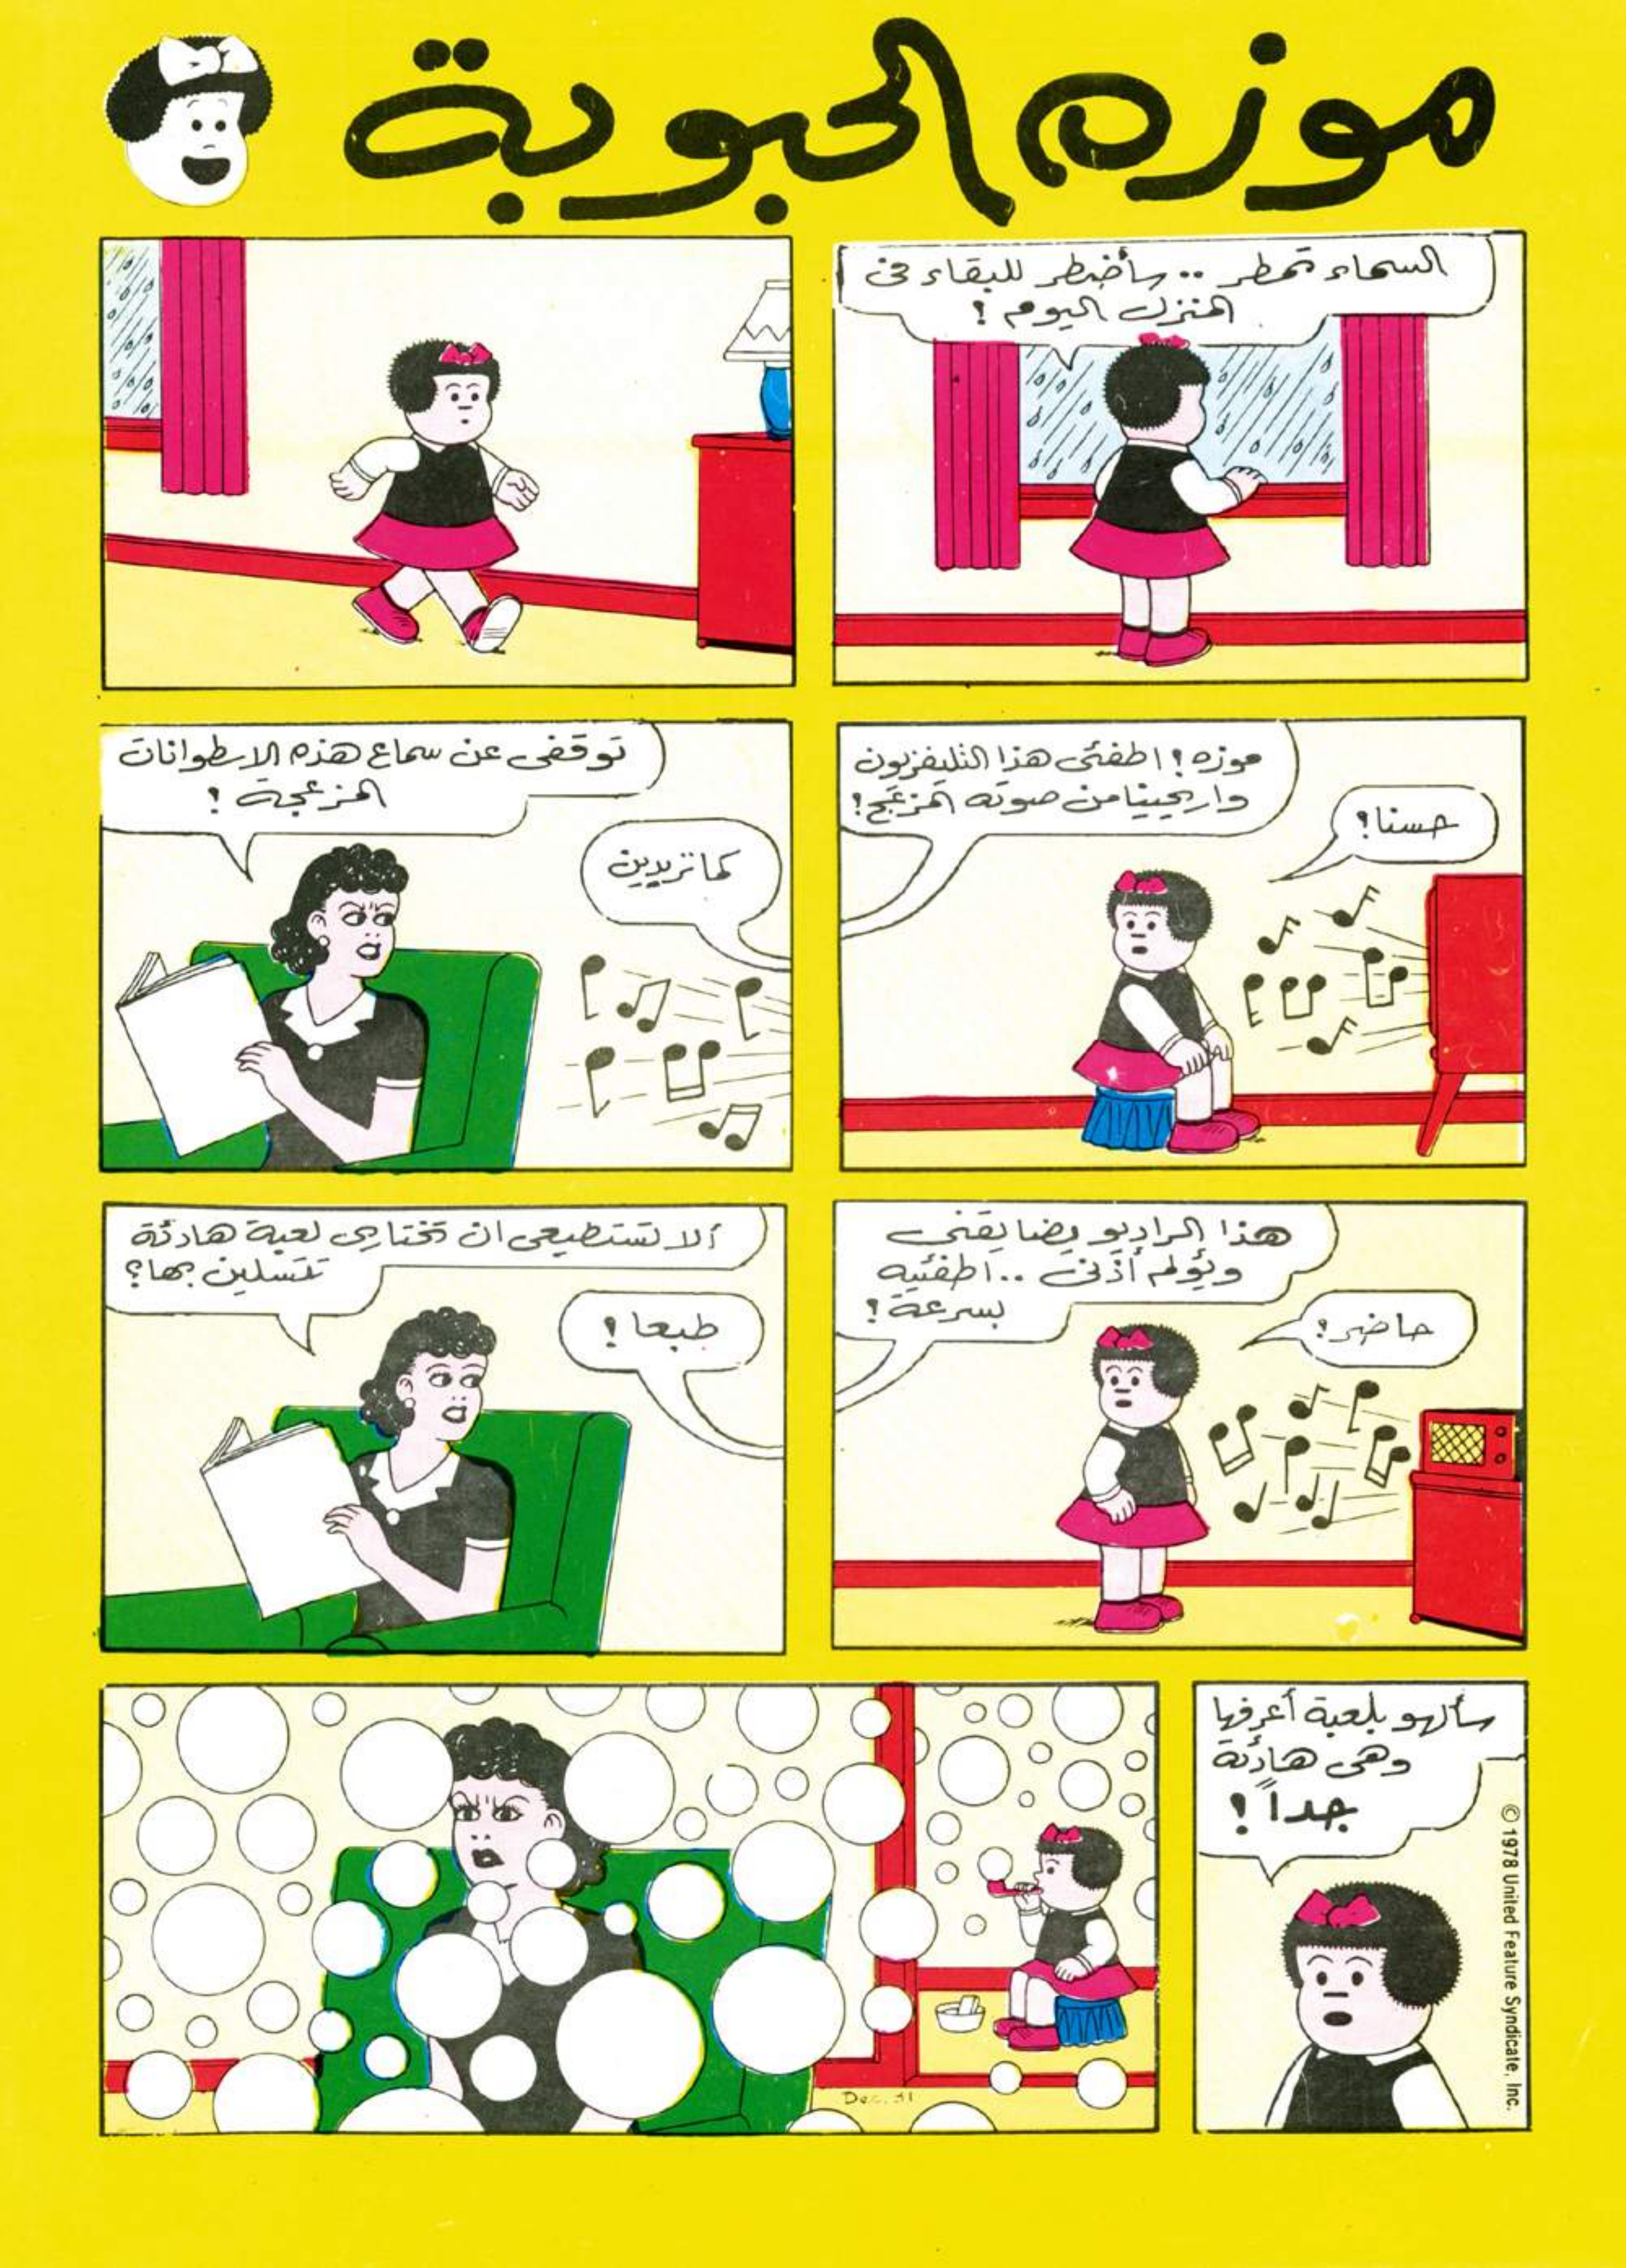 موزه الحبوبة
السماء تمطر .. سأضطر للبقاء فى
المنزل اليوم !
موزه ! اطفئى هذا التليفزيون
واريحينا من صوته المزعج !
حسنا !
توقفى عن سماع هذه الاسطوانات
المزعجة !
كما تريدين
هذا الراديو يضايقنى
ويؤلم أذنى .. اطفئيه
بسرعة !
حاضر !
ألا تستطيعى ان تختارى لعبة هادئة
تتسلين بها ؟
طبعا !
سألهو بلعبة أعرفها
وهى هادئة
جداً !
© 1978 United Feature Syndicate, Inc.
Dec. 31